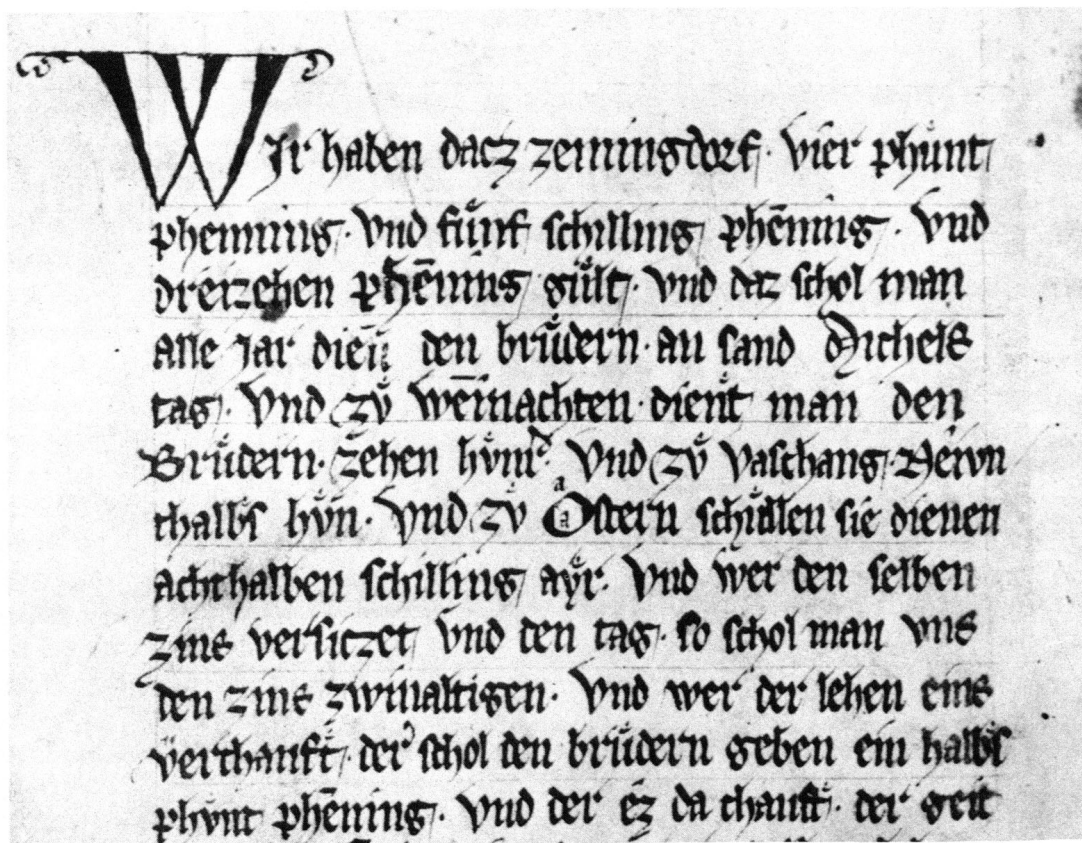 WIr haben dacz zemingdorf · vier phunt
phenning · vnd fuͤnf schilling phēning · vnd
dreizehen phēning guͤlt · vnd daz schol man
alle Jar dien̄ den bruͤdern · an sand Michels
tag · Vnd zuͤ wēinachten · dient man den
Bruͤdern · zehen Vnd zvͦ vaschang · Nevn
thalbs hvͤn · Vnd zvͦ Ostern schuͤllen sie dienen
achthalben schilling ayr · Vnd wer den selben
zins versiczet vnd den tag · so schol man vns
den zins zwinaltigen · Vnd wer der lehen eins
verchauft · der schol den bruͤdern geben ein halbs
phvnt phēning · Vnd der ez da chauft · der geit